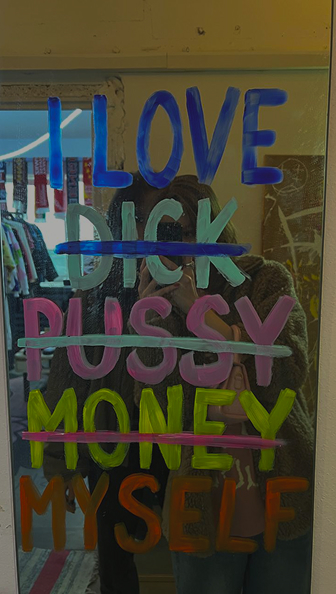 I LOVE
DICK
PUSSY
MONEY
MYSELF